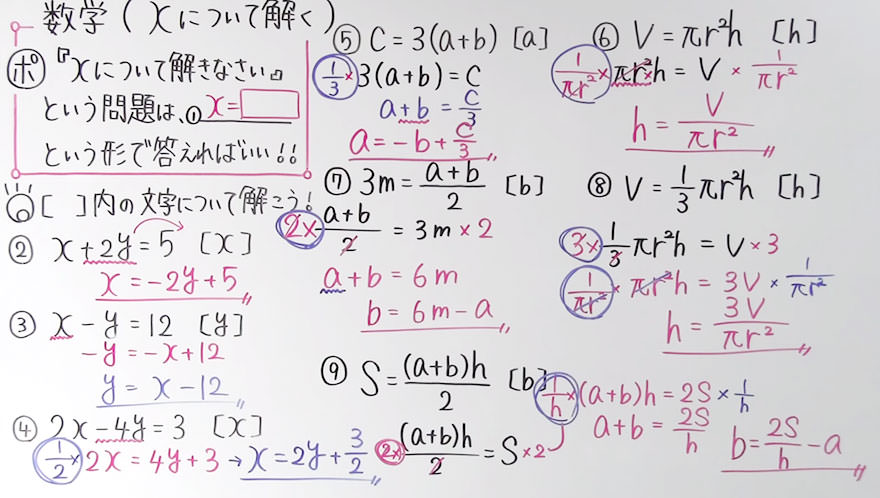 数学(xについて解く)
ポ『xについて解きなさい。』
という問題は、①x=□
という形で答えればいい!!
[ ]内の文字について解こう!
② x+2y=5 [x]
x=-2y+5
③ x-y=12 [y]
-y=-x+12
y=x-12
④ 2x-4y=3 [x]
1/2×2x=4y+3→x=2y+3/2
⑤ C=3(a+b) [a]
1/3×3(a+b)=C
a+b=C/3
a=-b+C/3
⑦ 3m=(a+b)/2 [b]
2×(a+b)/2=3m×2
a+b=6m
b=6m-a
⑨ S=(a+b)h/2 [b]
2×(a+b)h/2=S×2
1/h×(a+b)h=2S×1/h
a+b=2S/h
b=2S/h-a
⑥ V=πr²h [h]
1/πr²×πr²×h=V×1/πr²
h=V/πr²
⑧ V=1/3πr²h [h]
3×1/3πr²h=V×3
1/πr²×πr²h=3V×1/πr²
h=3V/πr²